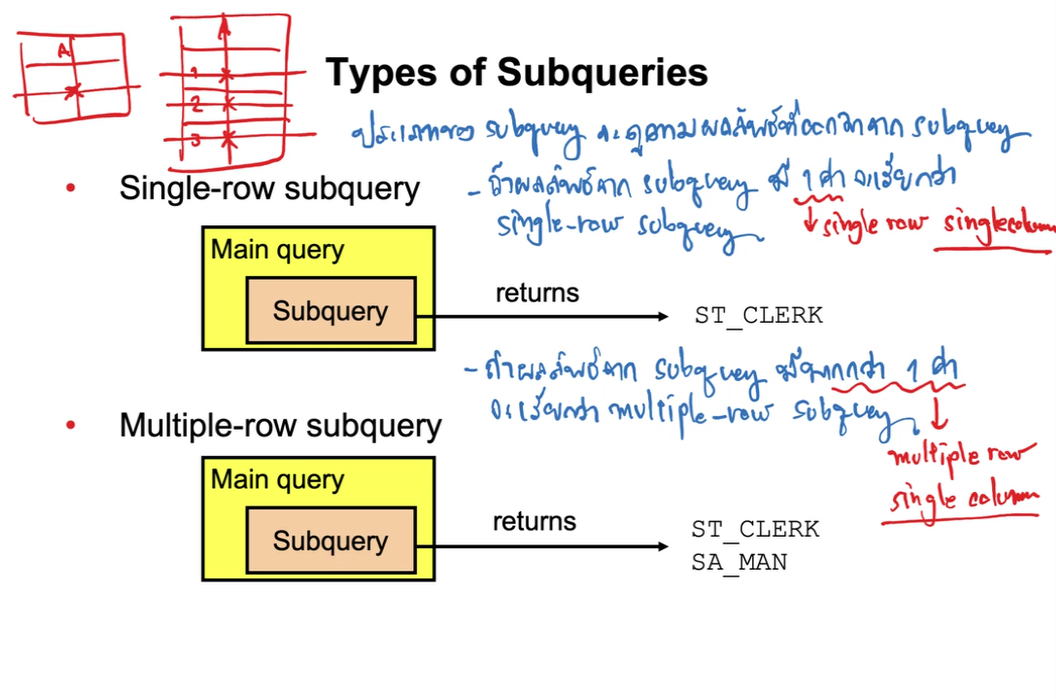 A
A
1
2
3
Types of Subqueries
ประเภทของ subquery จะดูตามผลลัพธ์ที่ออกมาจาก subquery
• Single-row subquery
- ถ้าผลลัพธ์จาก subquery มี 1 ค่า จะเรียกว่า
single-row subquery
single row single column
Main query
Subquery
returns
ST_CLERK
- ถ้าผลลัพธ์จาก subquery มีมากกว่า 1 ค่า
จะเรียกว่า multiple-row subquery
• Multiple-row subquery
multiple row
single column
Main query
Subquery
returns
ST_CLERK
SA_MAN